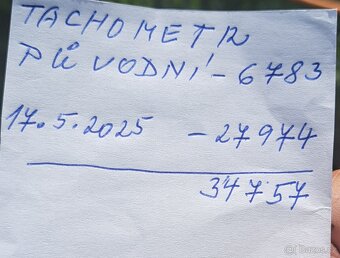 TACHOMETR
PŮVODNÍ - 6783
17.5.2025 - 27974
34757